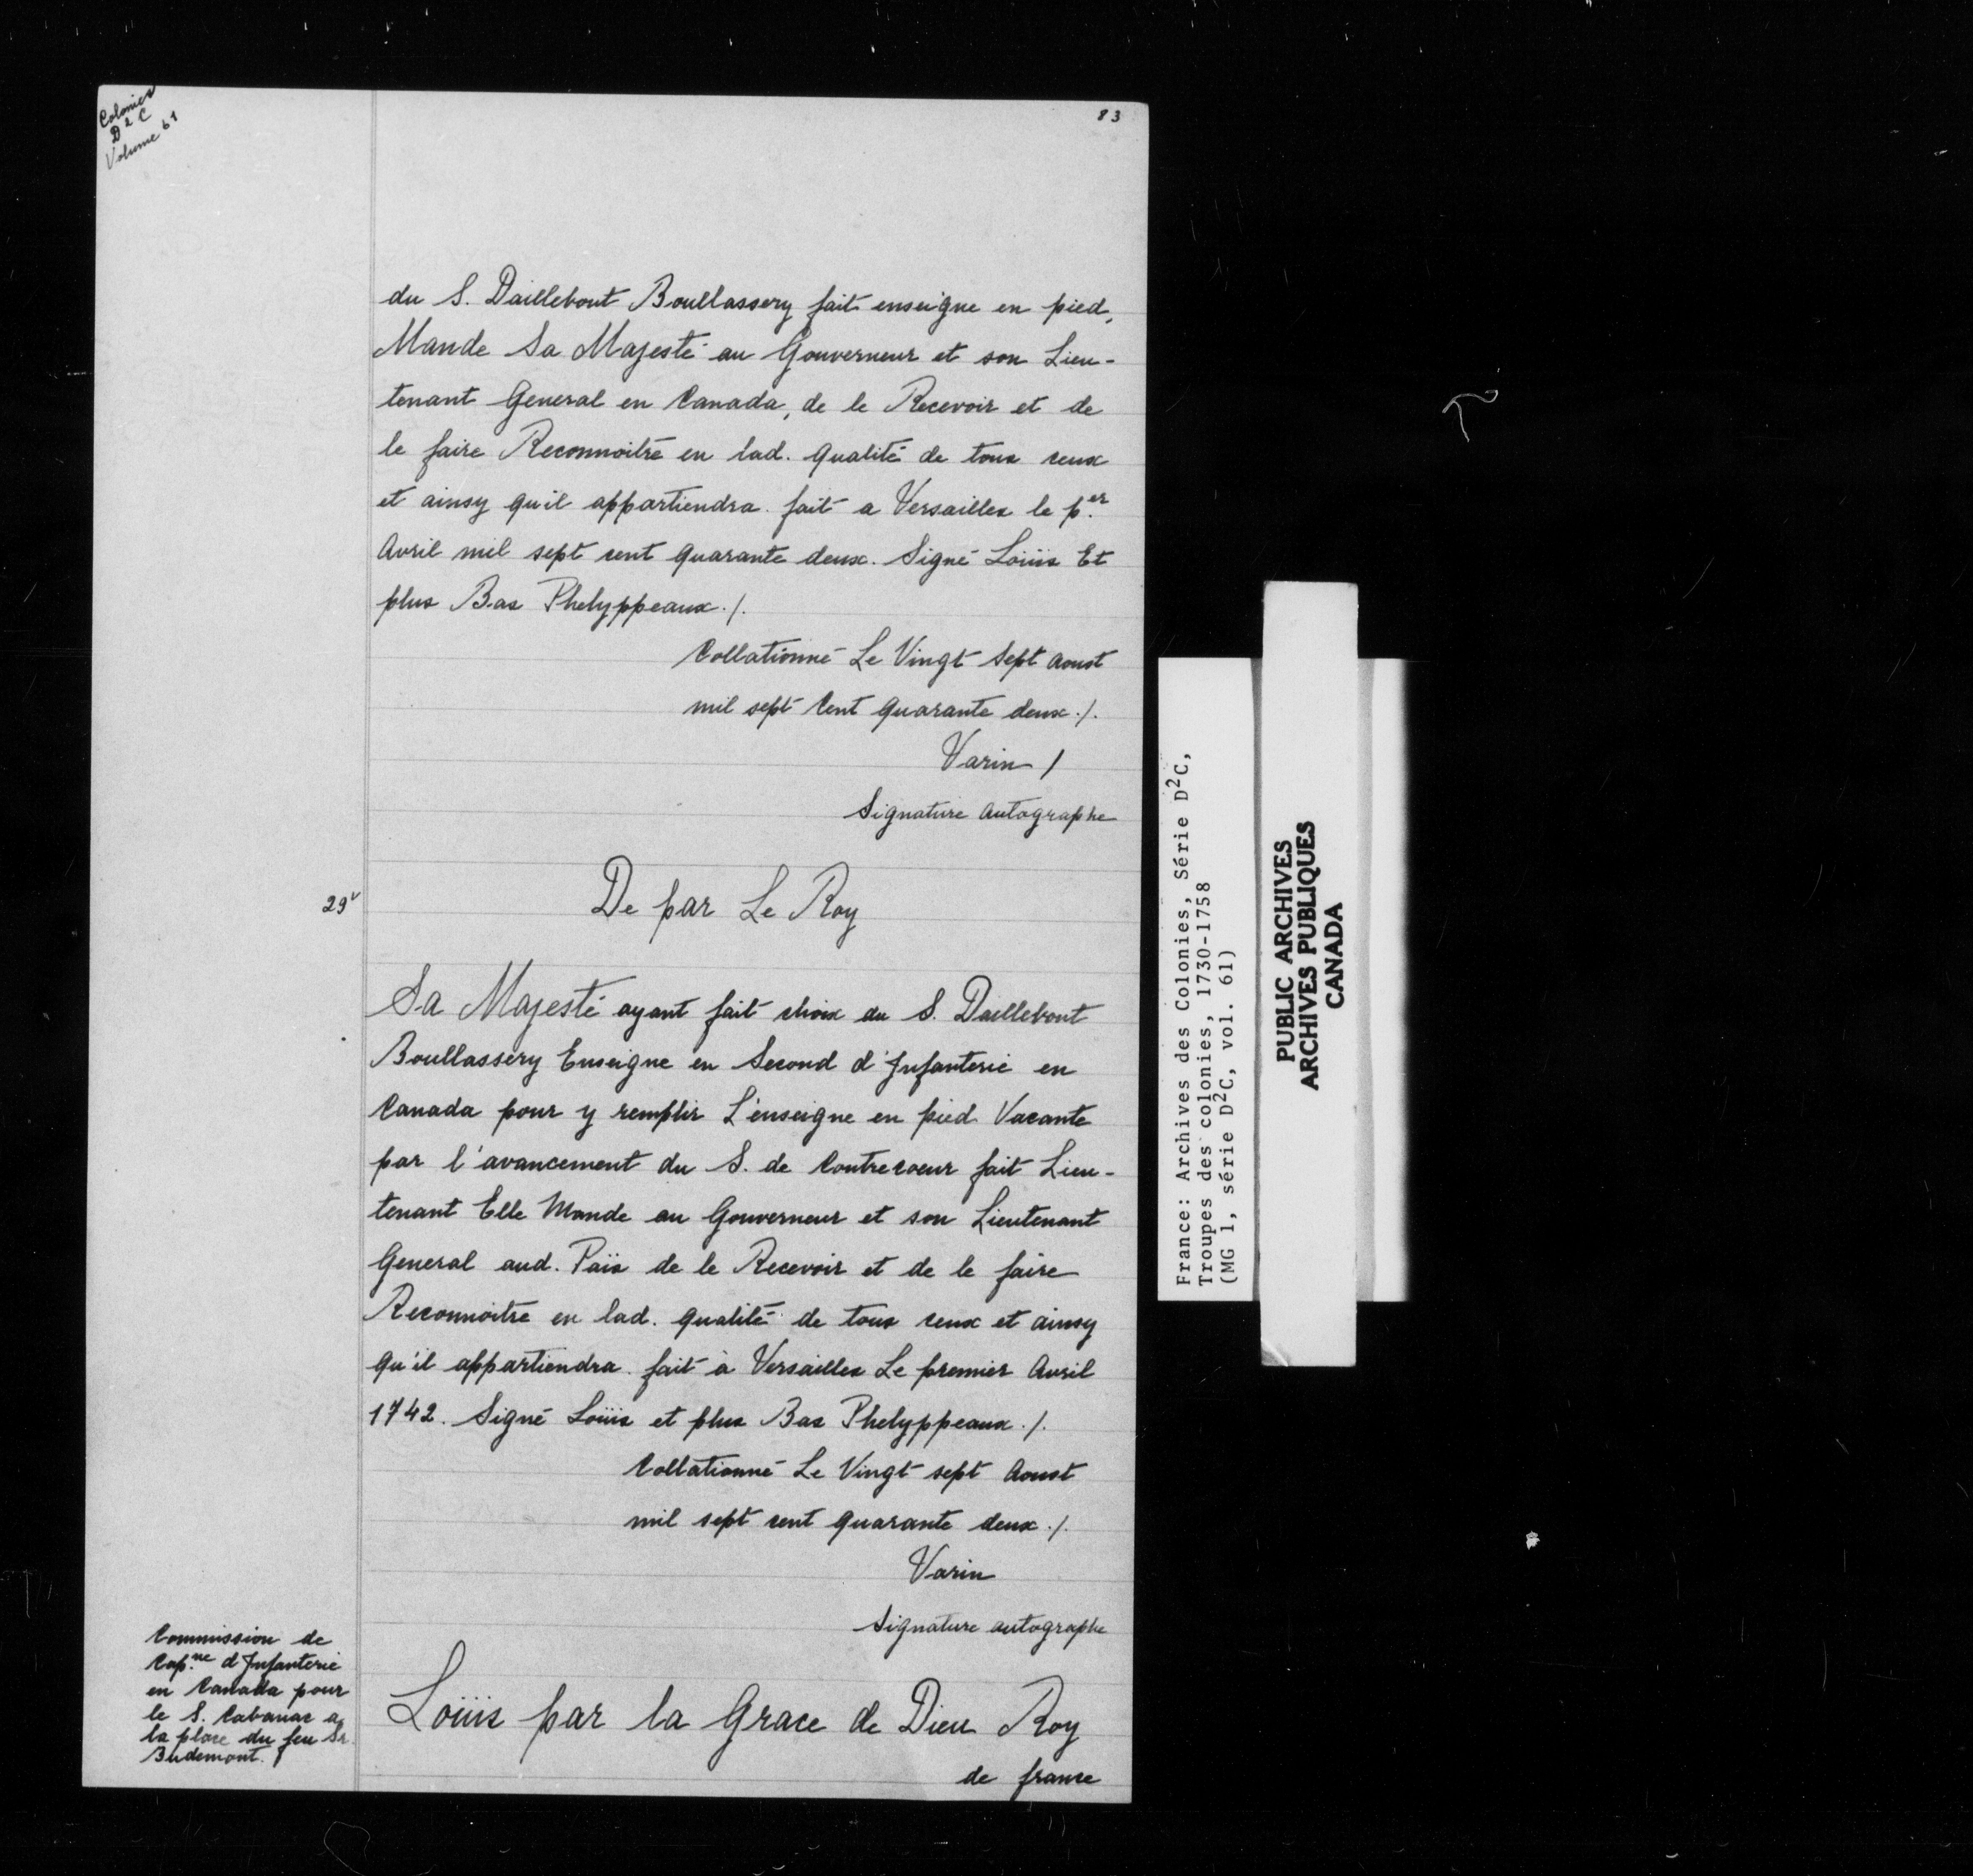 Colonies
D2C
Volume 61
83
du S. Daillebout Boullassery fait enseigne en pied,
Mande Sa Majesté au Gouverneur et son Lieu-
tenant General en Canada, de le Recevoir et de
le faire Reconnoitre en lad. qualité de tous ceux
et ainsy qu'il appartiendra. fait a Versailles le p.er
Avril mil sept cent quarante deux. Signé Loüis Et
plus Bas Phelyppeaux./.
Collationné Le Vingt Sept Aoust
mil sept Cent quarante deux./.
Varin /
Signature Autographe
29v
De par Le Roy
Sa Majesté ayant fait choix du S. Daillebout
Boullassery Enseigne en Second d'Infanterie en
Canada pour y remplir L'enseigne en pied Vacante
par l'avancement du S. de Contrecoeur fait Lieu-
tenant Elle Mande au Gouverneur et son Lieutenant
General aud. Païs de le Recevoir et de le faire
Reconnoitre en lad. qualité de tous ceux et ainsy
qu'il appartiendra. fait à Versailles Le premier Avril
1742. Signé Loüis et plus Bas Phelyppeaux./.
Collationné Le Vingt sept Aoust
mil sept cent quarante deux./.
Varin
Signature autographe
Commission de
Cap.ne d'Infanterie
en Canada pour
le S. Cabanac a
la place du feu Sr.
Budemont.
Loüis par la Grace de Dieu Roy
de france
France: Archives des Colonies, Série D2C,
Troupes des colonies, 1730-1758
(MG 1, série D2C, vol. 61)
PUBLIC ARCHIVES
ARCHIVES PUBLIQUES
CANADA